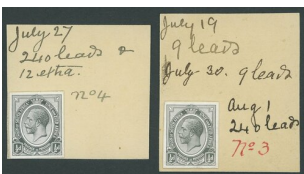 July 27
240 leads &
12 extra.
No 4
July 19
9 leads
July 30. 9 leads
Aug 1
240 leads
No 3